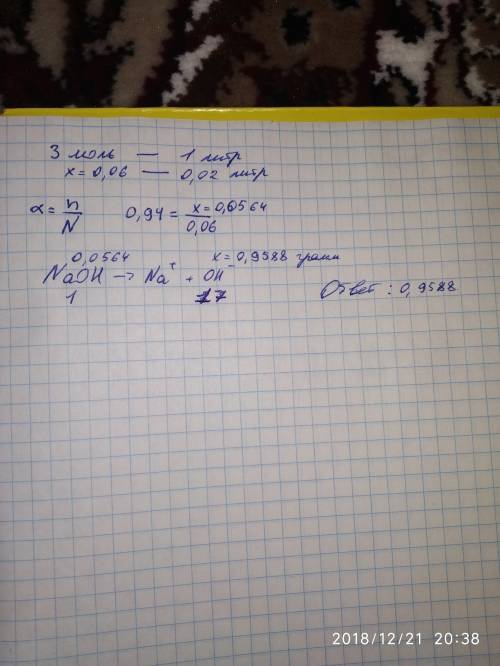 3 моль — 1 литр
x = 0,06 — 0,02 литр
α = n/N 0,94 = x = 0,0564/0,06
0,0564 x = 0,9588 грамм
NaOH → Na⁺ + OH⁻
1 17
Ответ : 0,9588
2018/12/21 20:38